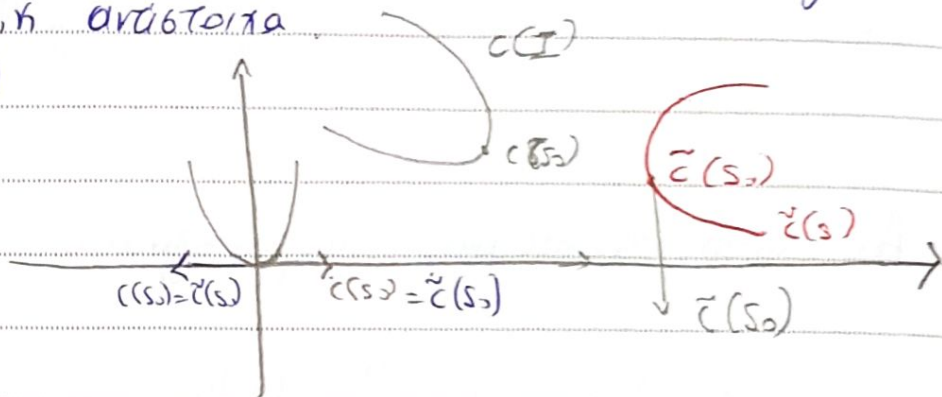 ,κ αντιστοιχα.
c(I)
c(s₀)
c̃(s₀)
c̃(s)
c(s₀)=c̃(s₀)
ċ(s₀) = c̃̇(s₀)
c̃(s₀)